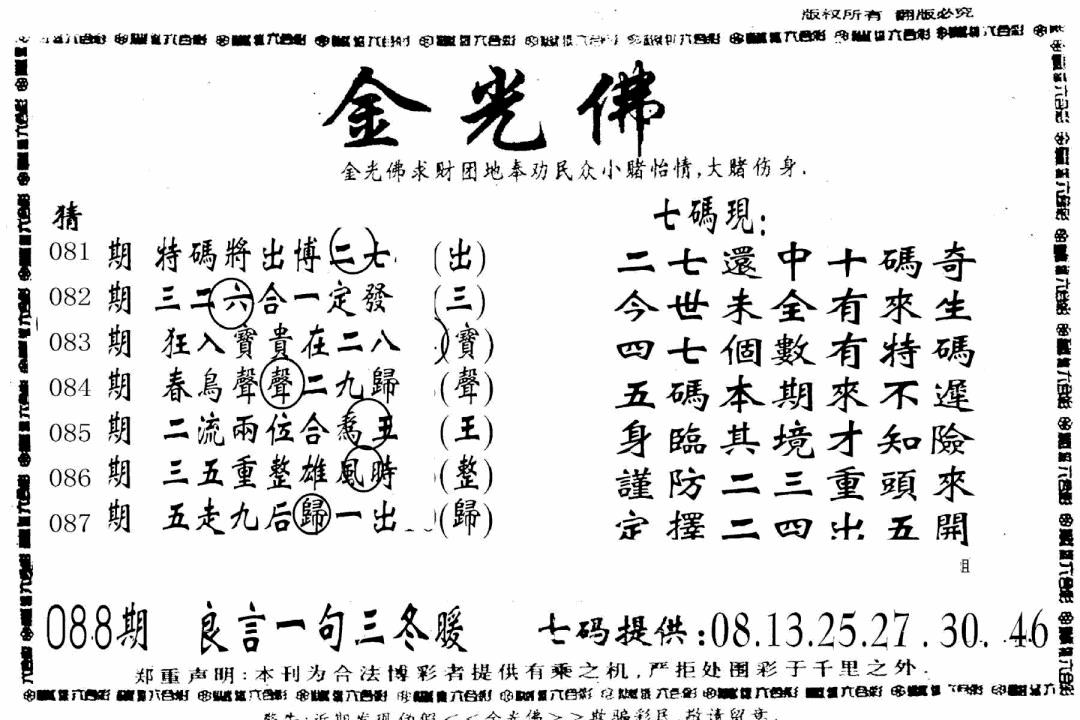 版权所有 翻版必究
金光佛
金光佛求财团地奉劝民众小赌怡情,大赌伤身.
猜
081 期 特碼將出博二七 (出)
082 期 三二六合一定發 (三)
083 期 狂入寶貴在二八 (寶)
084 期 春鳥聲聲二九歸 (聲)
085 期 二流兩位合喬王 (王)
086 期 三五重整雄風時 (整)
087 期 五走九后歸一出 (歸)
七碼現:
二七還中十碼奇
今世未全有來生
四七個數有特碼
五碼本期來不遲
身臨其境才知險
謹防二三重頭來
定擇二四出五開
088期 良言一句三冬暖 七码提供:08.13.25.27.30.46
郑重声明:本刊为合法博彩者提供有乘之机,严拒处围彩于千里之外.
警告:近期发现仿假<<金光佛>>欺骗彩民,敬请留意.